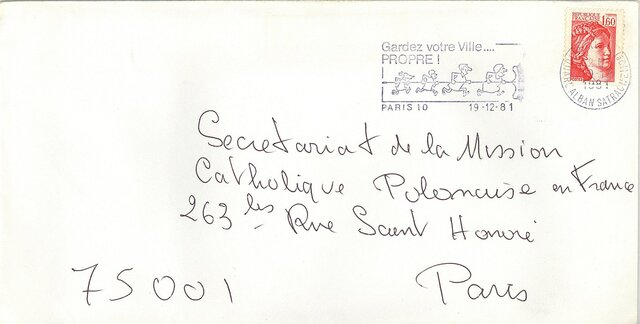 Gardez votre Ville....
PROPRE !
PARIS 10 19-12-81
REPUBLIQUE
FRANÇAISE
1,60
1981
ALBAN SATRAGNE
Secretariat de la Mission
Catholique Polonaise en France
263 bis Rue Saint Honoré
75001 Paris